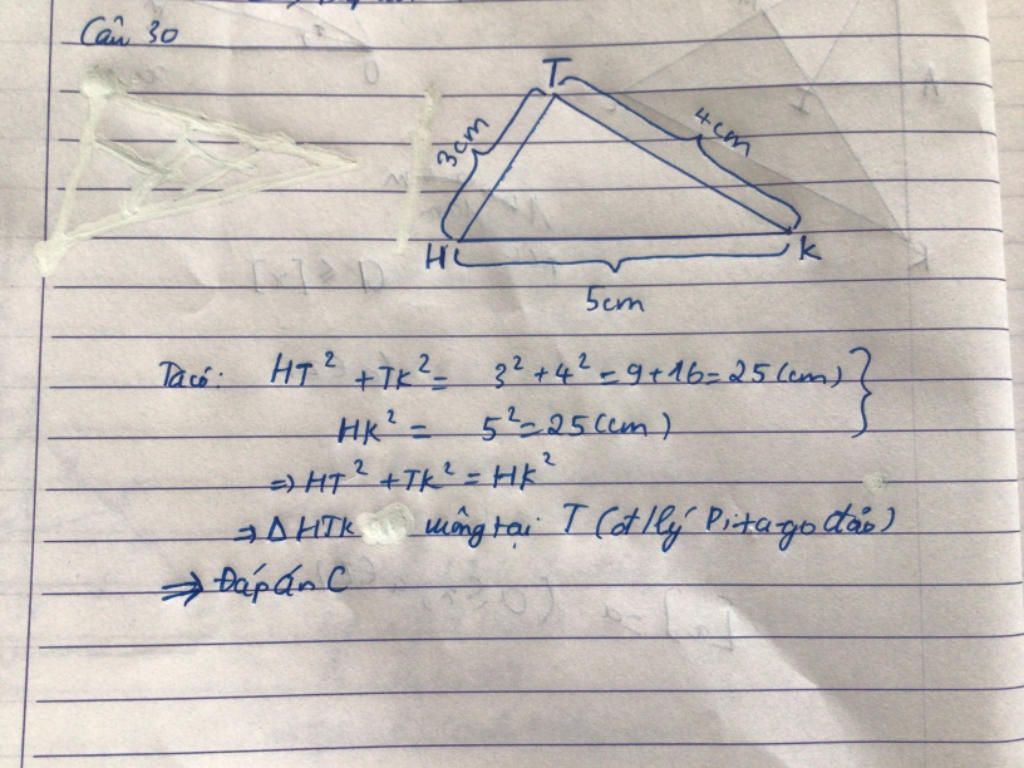 Câu 30
T
3cm
4cm
H
K
5cm
Ta có: HT² + TK² = 3² + 4² = 9 + 16 = 25 (cm)
HK² = 5² = 25 (cm)
=> HT² + TK² = HK²
=> Δ HTK vuông tại T (đ/lý Pi-ta-go đảo)
=> Đáp án C